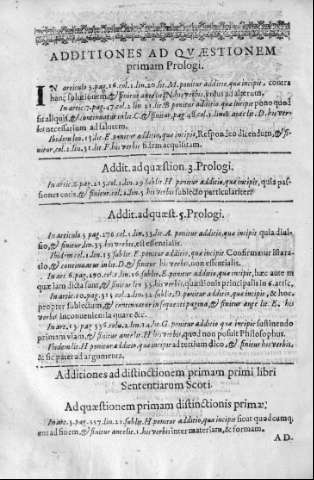 ADDITIONES AD QVÆSTIONEM
primam Prologi.
IN articulo 3. pag. 16. col. 1. lin. 20. lit. M. ponitur additio, quæ incipit, contra
hanc solutionem, & finitur ante lit. N. his verbis, prius ad alterum.
In artic. 7. pag. 47. col. 2. lin. 21. lit. B. ponitur additio quæ incipit pono quod
sit aliquis, & continuatur in lit. C, & finitur, pag. 48. col. 2. lin. 8. ante lit. D. his ver-
bis necessarium ad salutem.
Ibidem lin. 15. lit. E. ponitur additio, quæ incipit, Respondeo dicendum, & fi-
nitur, col. 2. lin. 31. lit. F. his verbis fidem acquisitam.
Addit. ad quæstion. 3. Prologi.
In artic. pag. 213. col. 1. lin. 29. sub lit. H. ponitur additio, quæ incipit, quia pas-
siones entis, & finitur col. 2. lin. 5. his verbis subiecto particulariter.
Addit. ad quæst. 5. Prologi.
In articulo 5. pag. 276. col. 1. lin. 33. sub lit. A. ponitur additio, quæ incipit quia divi-
sio, & finitur lin. 35. his verbis, est essentialis.
Ibidem col. 1. lin. 15. sub lit. E. ponitur additio, quæ incipit Confirmatur ista ra-
tio, & continuatur in lit. D. & finitur his verbis, non essentialis.
In artic. 6. pag. 290. col. 2. lin. 16. sub lit. E. ponitur additio, quæ incipit, hæc autem
quædam dicta sunt, & finitur lin. 35. his verbis, quæstionis principalis in 6. artic.
In artic. 10. pag. 315. col. 2. lin. 32. sub lit. D. ponitur additio, quæ incipit, & hoc
propter subiectum, & continuatur in sequenti pagina, & finitur ante lit. E, his
verbis inconvenientia quare &c.
In art. 13. pag. 336. col. 2. lin. 14. lit. G. ponitur additio quæ incipit sustinendo
primam viam, & finitur ante lit. H. his verbis, quod non posuit Philosophus.
Ibidem lit. H. ponitur additio quæ incipit ad tertium dico, & finitur his verbis,
& sic patet ad argumenta.
Additiones ad distinctionem primam primi libri
Sententiarum Scoti.
Ad quæstionem primam distinctionis primæ;
In art. 3. pag. 357. lin. 21. sub lit. H. ponitur additio, quæ incipit sicut quodcumq;
ens ad finem, & finitur ante lit. I. his verbis inter materiam, & formam.
AD.